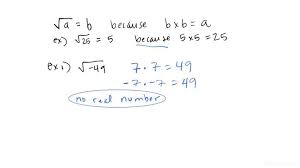 √a = b because b×b = a
ex) √25 = 5 because 5×5 = 25
ex1) √-49 7·7 = 49
-7·-7 = 49
no real number